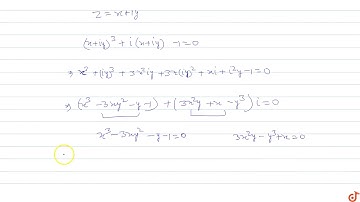 z = x+iy
(x+iy)³ + i (x+iy) -1=0
⇒ x³ + (iy)³ + 3x²iy + 3x(iy)² + xi + i²y -1=0
⇒ (x³ - 3xy² - y - 1) + (3x²y + x - y³) i = 0
x³ - 3xy² - y - 1 = 0 3x²y - y³ + x = 0